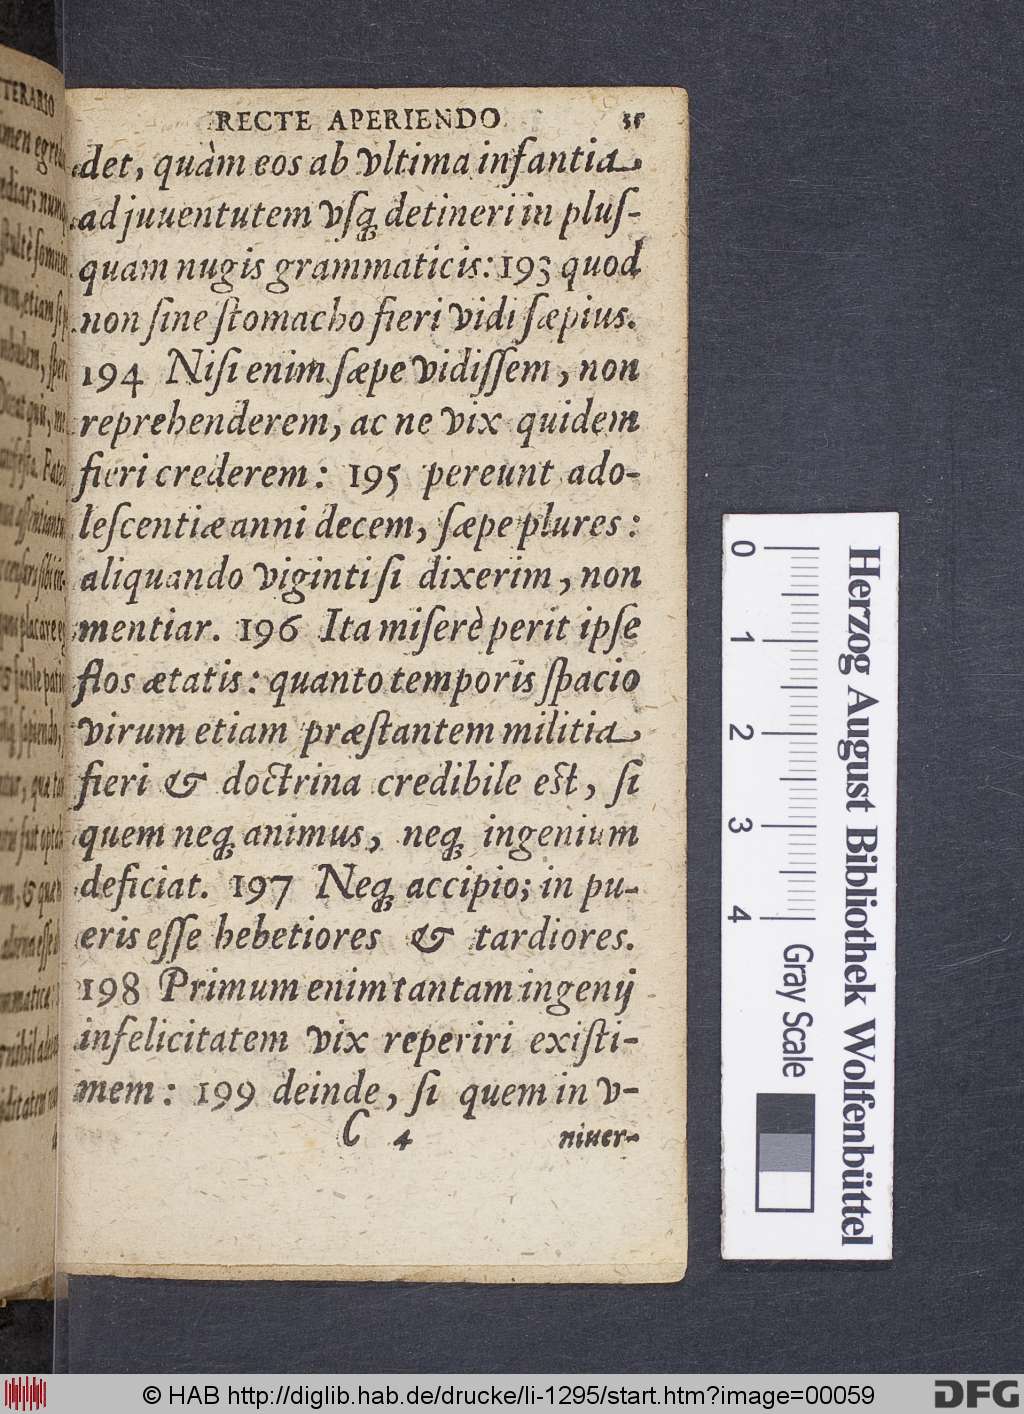 RECTE APERIENDO 35
det, quàm eos ab vltima infantia
ad juuentutem vſq; detineri in pluſ-
quam nugis grammaticis: 193 quod
non ſine ſtomacho fieri vidi ſæpius.
194 Niſi enim ſæpe vidiſſem, non
reprehenderem, ac ne vix quidem
fieri crederem: 195 pereunt ado-
leſcentiæ anni decem, ſæpe plures:
aliquando viginti ſi dixerim, non
mentiar. 196 Ita miſerè perit ipſe
flos ætatis: quanto temporis ſpacio
virum etiam præſtantem militia
fieri & doctrina credibile eſt, ſi
quem neq; animus, neq; ingenium
deficiat. 197 Neq; accipio; in pu-
eris eſſe hebetiores & tardiores.
198 Primum enim tantam ingenij
infelicitatem vix reperiri exiſti-
mem: 199 deinde, ſi quem in v-
C 4 niuer-
TERARIO
0
1
2
3
4
Gray Scale
Herzog August Bibliothek Wolfenbüttel
© HAB http://diglib.hab.de/drucke/li-1295/start.htm?image=00059
DFG